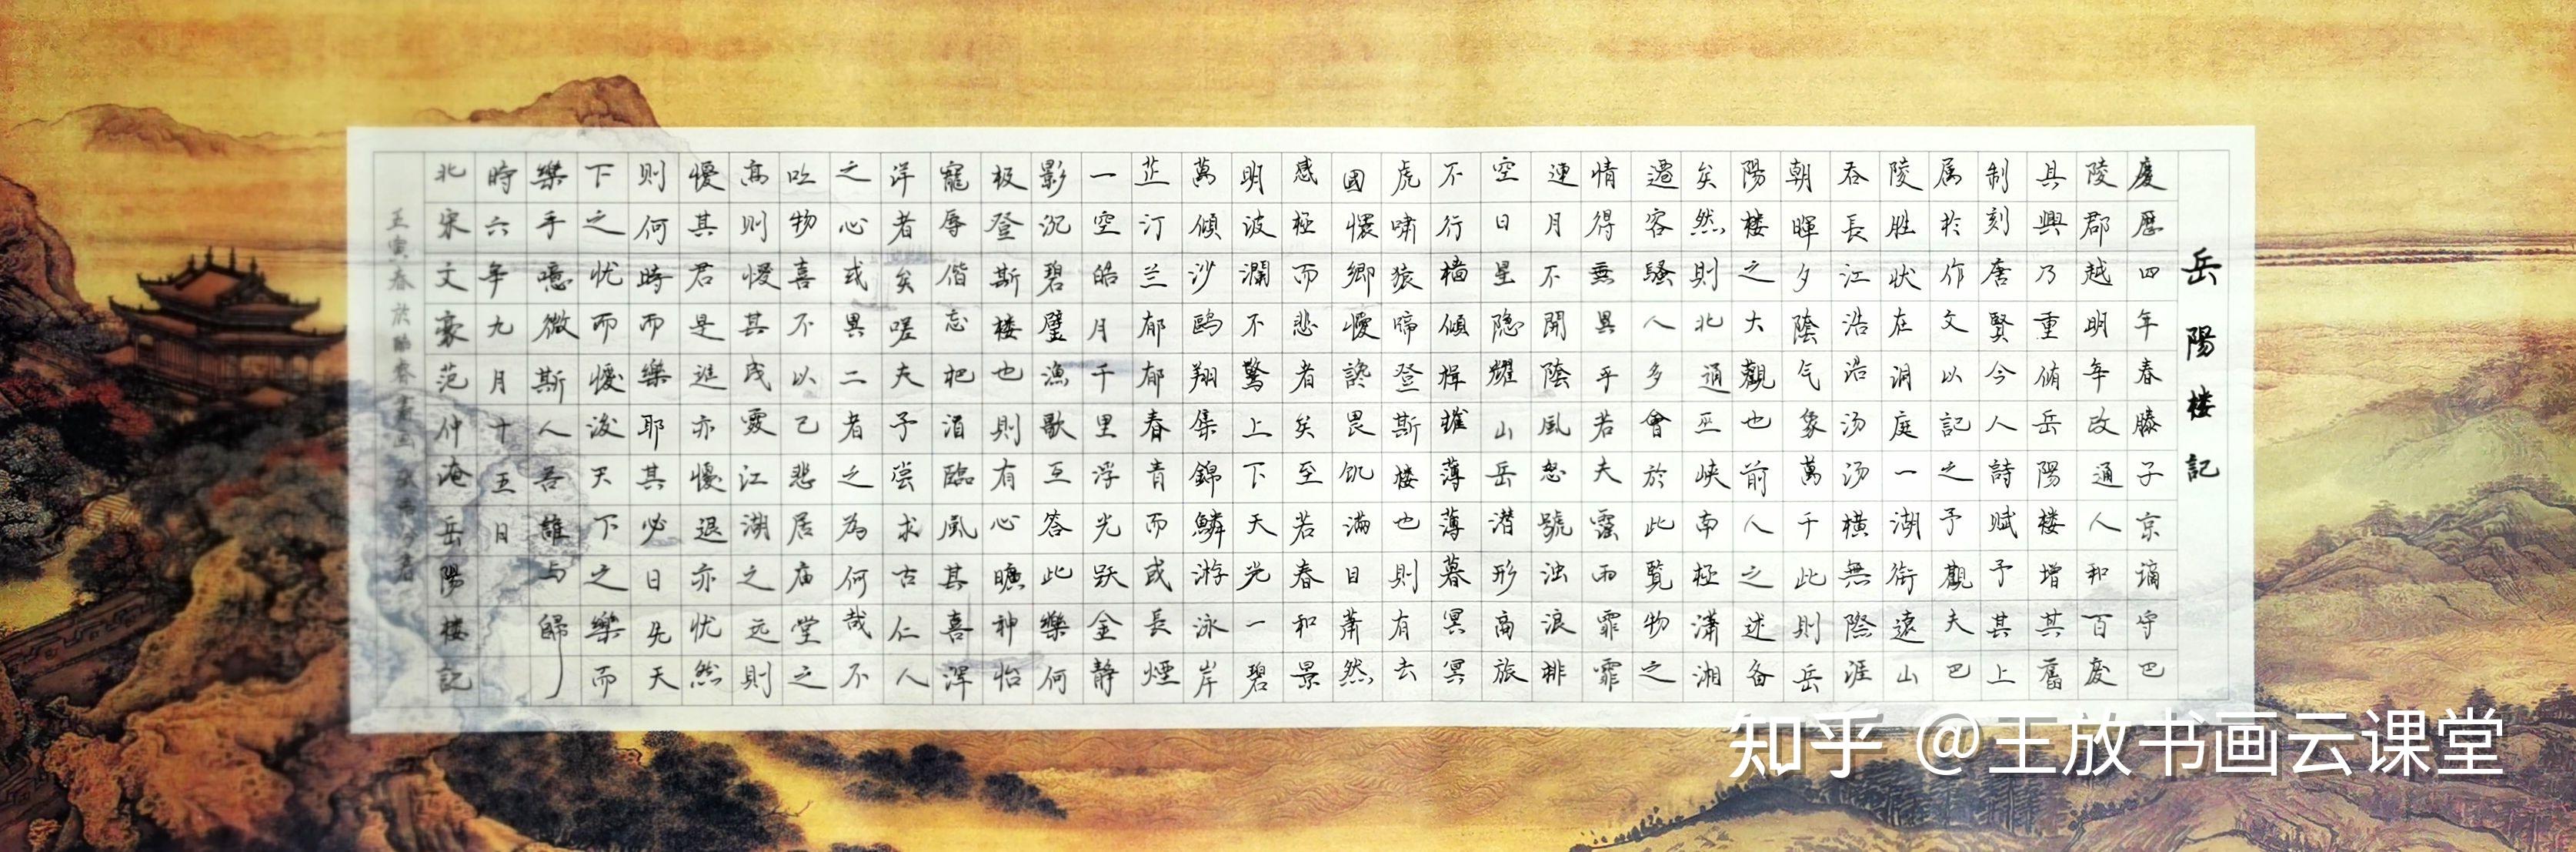 岳陽楼記
慶歷四年春滕子京谪守巴
陵郡越明年政通人和百废
具興乃重脩岳陽楼增其舊
制刻唐賢今人詩赋予其上
属於作文以記之予觀夫巴
陵胜状在洞庭一湖衔遠山
吞長江浩浩汤汤横無際涯
朝暉夕陰气象萬千此則岳
陽楼之大觀也前人之述备
矣然則北通巫峡南極潇湘
遷客騷人多會於此覧物之
情得無異乎若夫霪雨霏霏
連月不開陰風怒號浊浪排
空日星隐耀山岳潜形商旅
不行樯傾楫摧薄薄暮冥冥
虎啸猿啼登斯楼也則有去
國懷鄉憂讒畏饥滿目萧然
感極而悲者矣至若春和景
明波澜不驚上下天光一碧
萬傾沙鷗翔集錦鱗游泳岸
芷汀兰郁郁春青而或長煙
一空皓月千里浮光跃金静
影沉碧璧漁歌互答此樂何
极登斯楼也則有心曠神怡
寵辱偕忘把酒臨風其喜洋
洋者矣嗟夫予尝求古仁人
之心或異二者之為何哉不
以物喜不以己悲居庙堂之
高則憂其民處江湖之远則
憂其君是進亦憂退亦忧然
則何時而樂耶其必曰先天
下之忧而憂後天下之樂而
樂乎噫微斯人吾誰与歸
時六年九月十五日
北宋文豪范仲淹岳陽楼記
壬寅春於
知乎 @王放书画云课堂